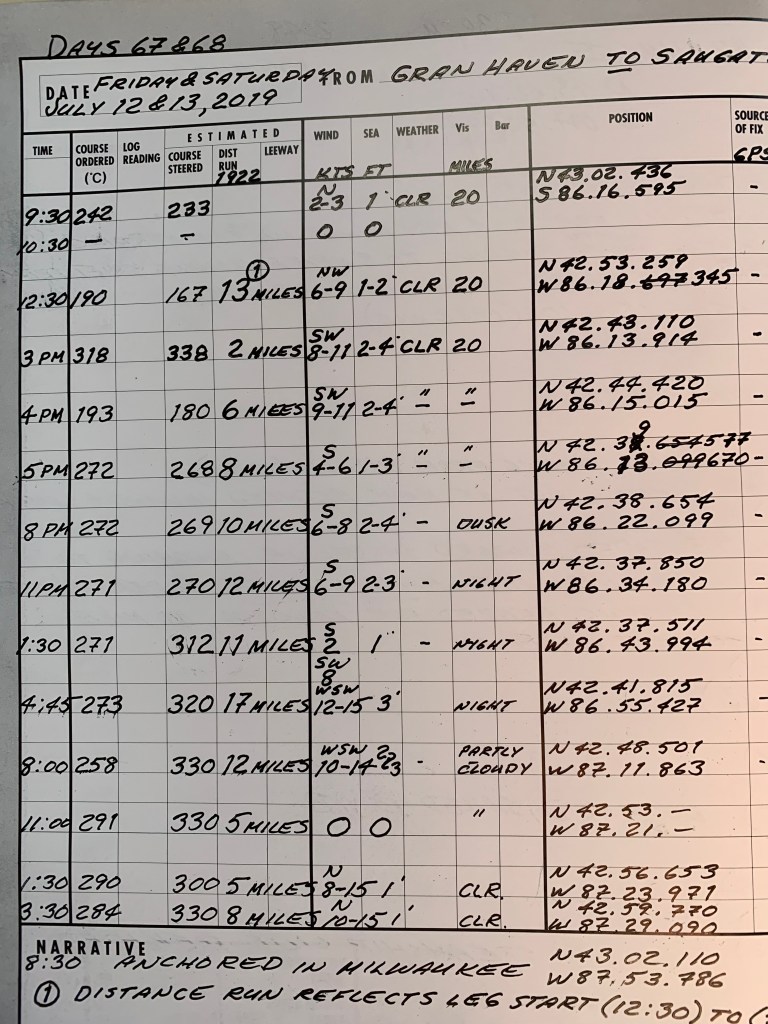 DAYS 67 & 68
DATE FRIDAY & SATURDAY FROM GRAN HAVEN TO SAUGAT
JULY 12 & 13, 2019
TIME COURSE ORDERED (°C) LOG READING ESTIMATED COURSE STEERED DIST RUN LEEWAY WIND SEA WEATHER Vis Bar POSITION SOURCE OF FIX
1922 KTS FT MILES GPS
N N43.02.436
9:30 242 233 2-3 1' CLR 20 S 86.16.595 -
10:30 — - O O
① NW N 42.53.259
12:30 190 167 13 MILES 6-9 1-2' CLR 20 W 86.18.697 345 -
SW N 42.43.110
3 PM 318 338 2 MILES 8-11 2-4' CLR 20 W 86.13.914 -
SW " " N 42.44.420
4 PM 193 180 6 MILES 9-11 2-4' - - W 86.15.015 -
9
S " " N 42.3 .654577
5 PM 272 268 8 MILES 4-6 1-3' - - W 86.13.099670 -
S N 42.38.654
8 PM 272 269 10 MILES 6-8 2-4' - DUSK W 86.22.099 -
S N 42.37.850
11 PM 271 270 12 MILES 6-9 2-3' - NIGHT W 86.34.180 -
S N 42.37.511
1:30 271 312 11 MILES 2 1' - NIGHT W 86.43.994 -
SW
8
WSW N42.41.815
4:45 273 320 17 MILES 12-15 3' NIGHT W 86.55.427 -
WSW 2 PARTLY N 42.48.501
8:00 258 330 12 MILES 10-14 2-3 - CLOUDY W 87.11.863 -
" N 42.53.—
11:00 291 330 5 MILES O O W 87.21.—
N N 42.56.653
1:30 290 300 5 MILES 8-15 1' CLR. W 87.23.971
N N 42.59.770
3:30 284 330 8 MILES 10-15 1' CLR. W 87.29.090
NARRATIVE
8:30 ANCHORED IN MILWAUKEE N43.02.110
W87.53.786
① DISTANCE RUN REFLECTS LEG START (12:30) TO (